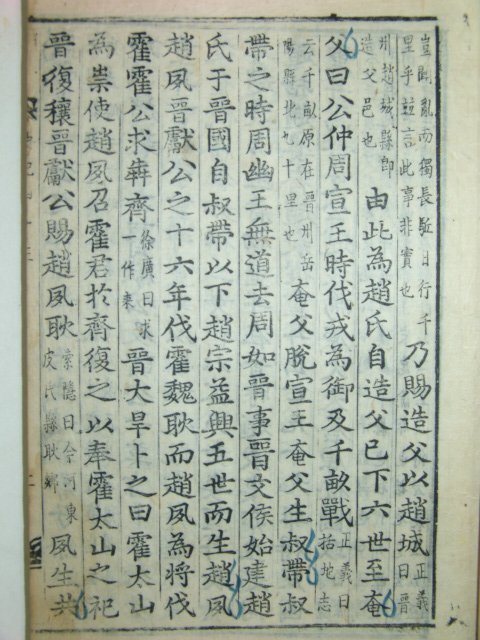 豈聞亂而獨長驅日行千里乎並言此事非實也乃賜造父以趙城正義曰晉
州趙城縣即造父邑也由此為趙氏自造父已下六世至奄
父曰公仲周宣王時伐戎為御及千畝戰正義曰括地志
云千畝原在晉州岳陽縣北九十里也奄父脫宣王奄父生叔帶叔
帶之時周幽王無道去周如晉事晉文侯始建趙
氏于晉國自叔帶以下趙宗益興五世而生趙夙
趙夙晉獻公之十六年伐霍魏耿而趙夙為將伐
霍霍公求犇齊徐廣曰求一作來晉大旱卜之曰霍太山
為祟使趙夙召霍君於齊復之以奉霍太山之祀
晉復穰晉獻公賜趙夙耿索隱曰今河東皮氏縣耿鄉夙生共